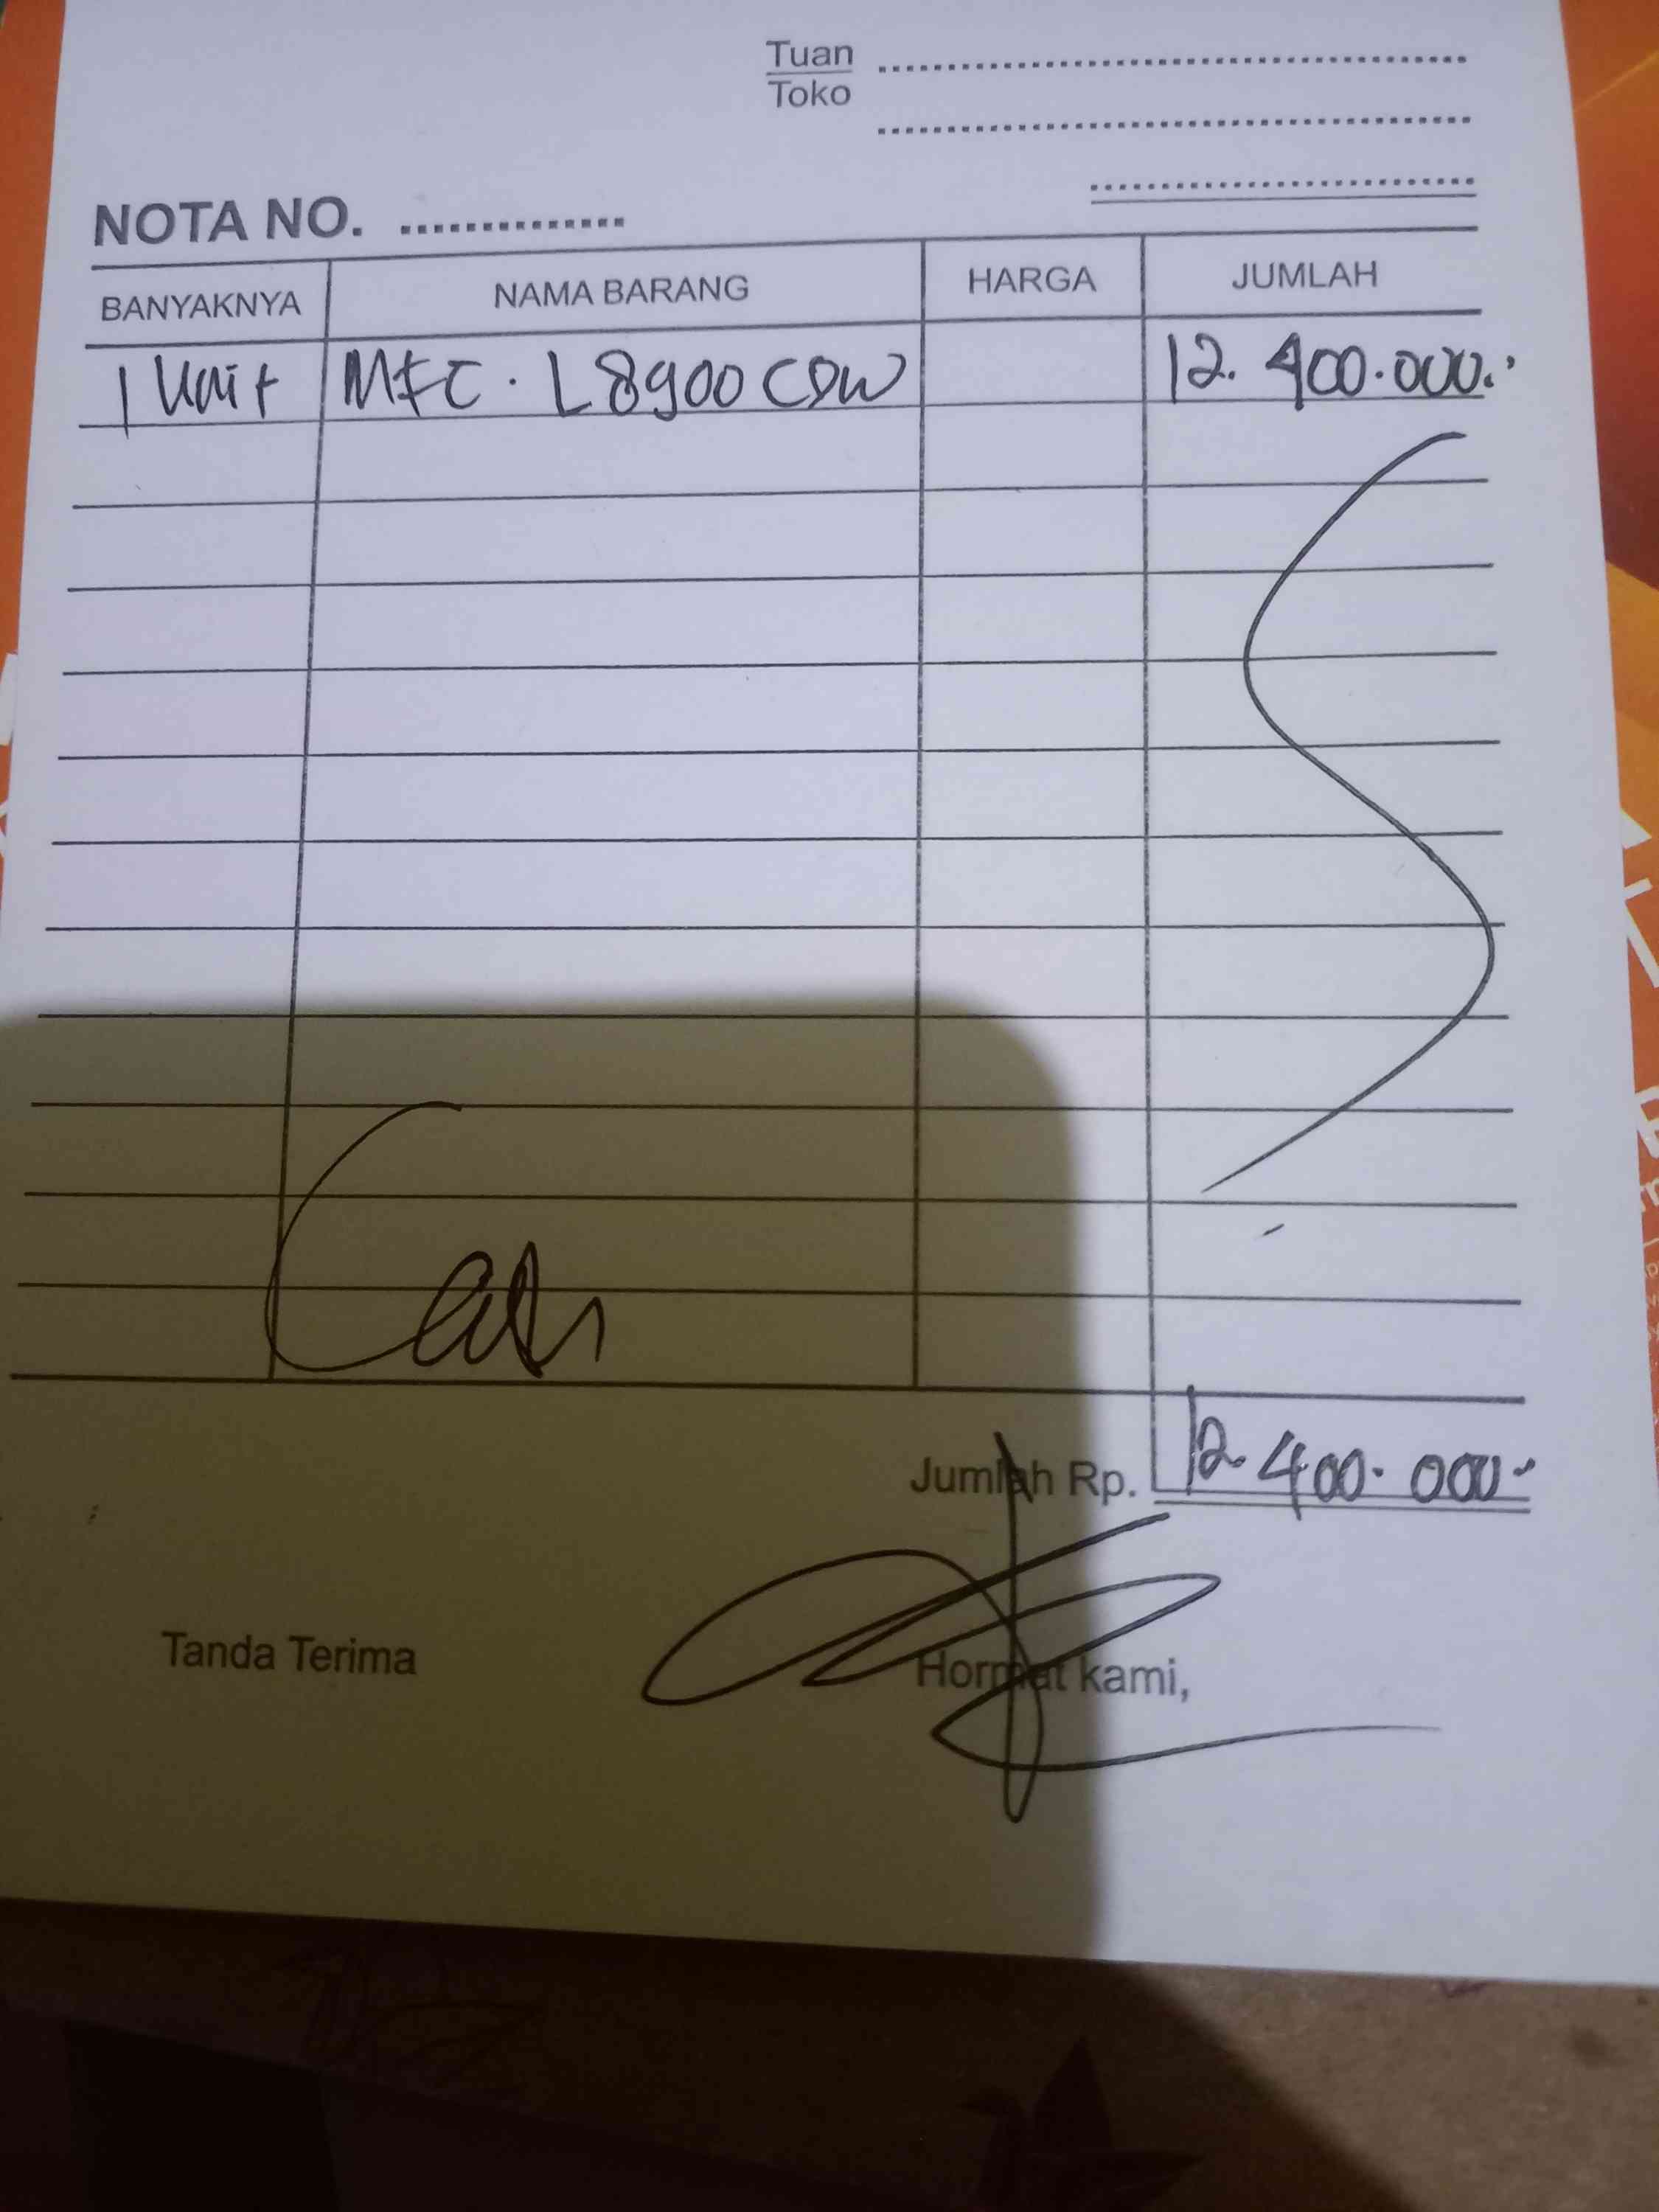 Tuan
Toko
NOTA NO.
BANYAKNYA NAMA BARANG HARGA JUMLAH
1 Unit MFC. L8900CDW 12.400.000.-
Cash
Jumlah Rp. 12.400.000.-
Tanda Terima Hormat kami,